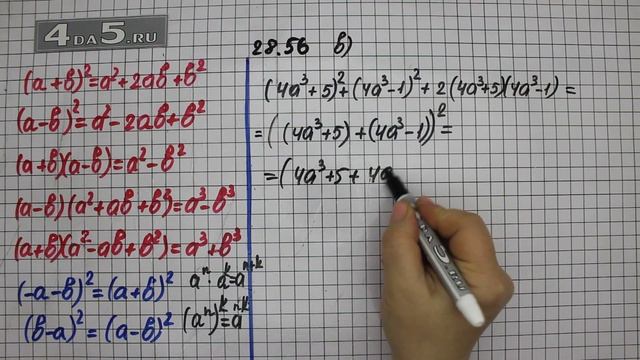 4DA5.RU
(a+b)²=a²+2ab+b²
(a-b)²=a²-2ab+b²
(a+b)(a-b)=a²-b²
(a-b)(a²+ab+b²)=a³-b³
(a+b)(a²-ab+b²)=a³+b³
(-a-b)²=(a+b)²
(b-a)²=(a-b)²
aⁿ·aᵏ=aⁿ⁺ᵏ
(aⁿ)ᵏ=aⁿ·ᵏ
28.56 в)
(4a³+5)²+(4a³-1)²+2(4a³+5)(4a³-1)=
=((4a³+5)+(4a³-1))²=
=(4a³+5+4a